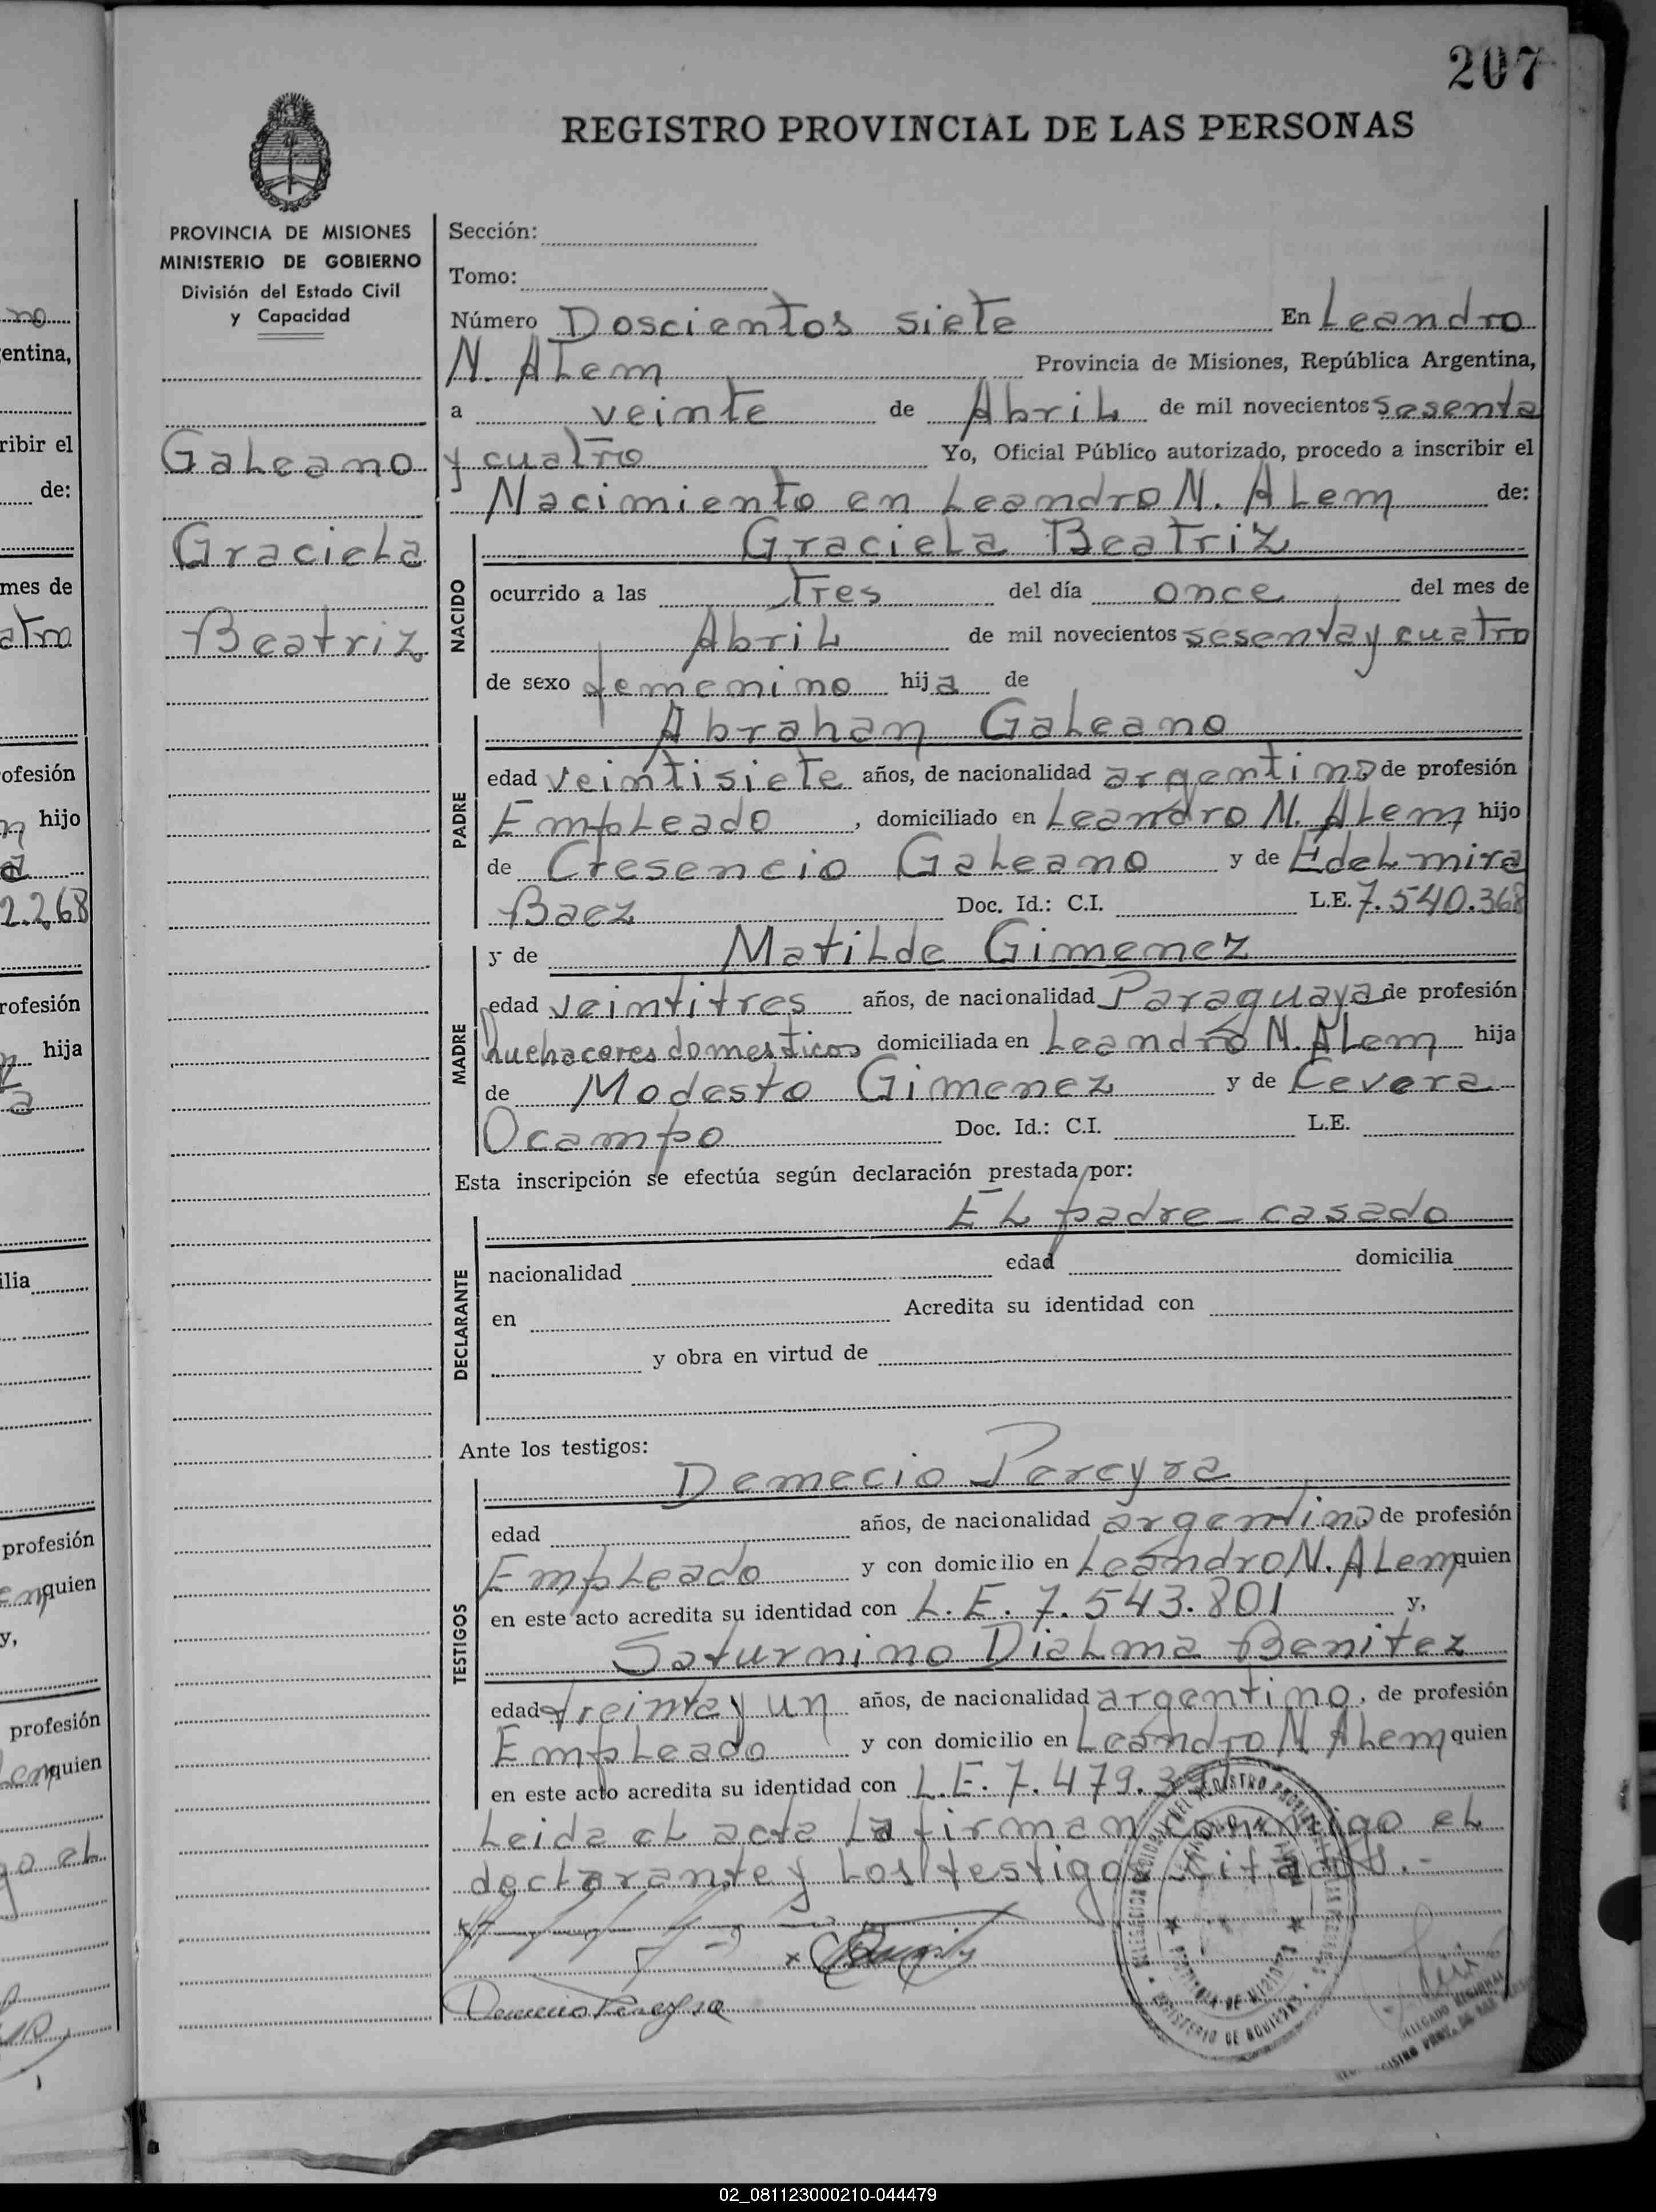 207
REGISTRO PROVINCIAL DE LAS PERSONAS
PROVINCIA DE MISIONES
MINISTERIO DE GOBIERNO
División del Estado Civil
y Capacidad
Galeano
Graciela
Beatriz
Sección:
Tomo:
Número Doscientos siete En Leandro
N. Alem Provincia de Misiones, República Argentina,
a veinte de Abril de mil novecientos sesenta
y cuatro Yo, Oficial Público autorizado, procedo a inscribir el
Nacimiento en Leandro N. Alem de:
NACIDO
Graciela Beatriz
ocurrido a las Tres del día once del mes de
Abril de mil novecientos sesenta y cuatro
de sexo femenino hija de
PADRE
Abraham Galeano
edad veintisiete años, de nacionalidad argentino de profesión
Empleado, domiciliado en Leandro N. Alem hijo
de Cresencio Galeano y de Edelmira
Baez Doc. Id.: C.I. L.E. 7.540.368
MADRE
y de Matilde Gimenez
edad veintitres años, de nacionalidad Paraguaya de profesión
huehaceres domesticos domiciliada en Leandro N. Alem hija
de Modesto Gimenez y de Cevera
Ocampo Doc. Id.: C.I. L.E.
Esta inscripción se efectúa según declaración prestada por:
DECLARANTE
El padre - casado
nacionalidad edad domicilia
en Acredita su identidad con
y obra en virtud de
Ante los testigos:
TESTIGOS
Demecio Pereyra
edad años, de nacionalidad argentino de profesión
Empleado y con domicilio en Leandro N. Alem quien
en este acto acredita su identidad con L.E. 7.543.801 y,
Saturnino Dialma Benitez
edad treinta y un años, de nacionalidad argentino, de profesión
Empleado y con domicilio en Leandro N Alem quien
en este acto acredita su identidad con L.E. 7.479.
Leida el acta la firman conmigo el
declarante y los testigos citados.-
Demecio Pereyra
PROVINCIA DE MISIONES
MINISTERIO DE GOBIERNO
DELEGADO REGIONAL
02_081123000210-044479